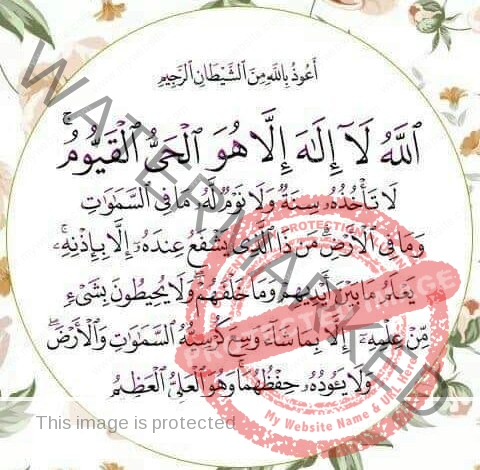 أَعُوذُ بِاللَّهِ مِنَ الشَّيْطَانِ الرَّجِيمِ
ٱللَّهُ لَآ إِلَٰهَ إِلَّا هُوَ ٱلْحَىُّ ٱلْقَيُّومُ ۚ
لَا تَأْخُذُهُۥ سِنَةٌ وَلَا نَوْمٌ ۚ لَّهُۥ مَا فِى ٱلسَّمَٰوَٰتِ
وَمَا فِى ٱلْأَرْضِ ۗ مَن ذَا ٱلَّذِى يَشْفَعُ عِندَهُۥٓ إِلَّا بِإِذْنِهِۦ ۚ
يَعْلَمُ مَا بَيْنَ أَيْدِيهِمْ وَمَا خَلْفَهُمْ ۖ وَلَا يُحِيطُونَ بِشَىْءٍ
مِّنْ عِلْمِهِۦٓ إِلَّا بِمَا شَآءَ ۚ وَسِعَ كُرْسِيُّهُ ٱلسَّمَٰوَٰتِ وَٱلْأَرْضَ ۖ
وَلَا يَـُٔودُهُۥ حِفْظُهُمَا ۚ وَهُوَ ٱلْعَلِىُّ ٱلْعَظِيمُ
WATERMARKED
PROTECTED IMAGE
My Site Name & My Url Here
This image is protected